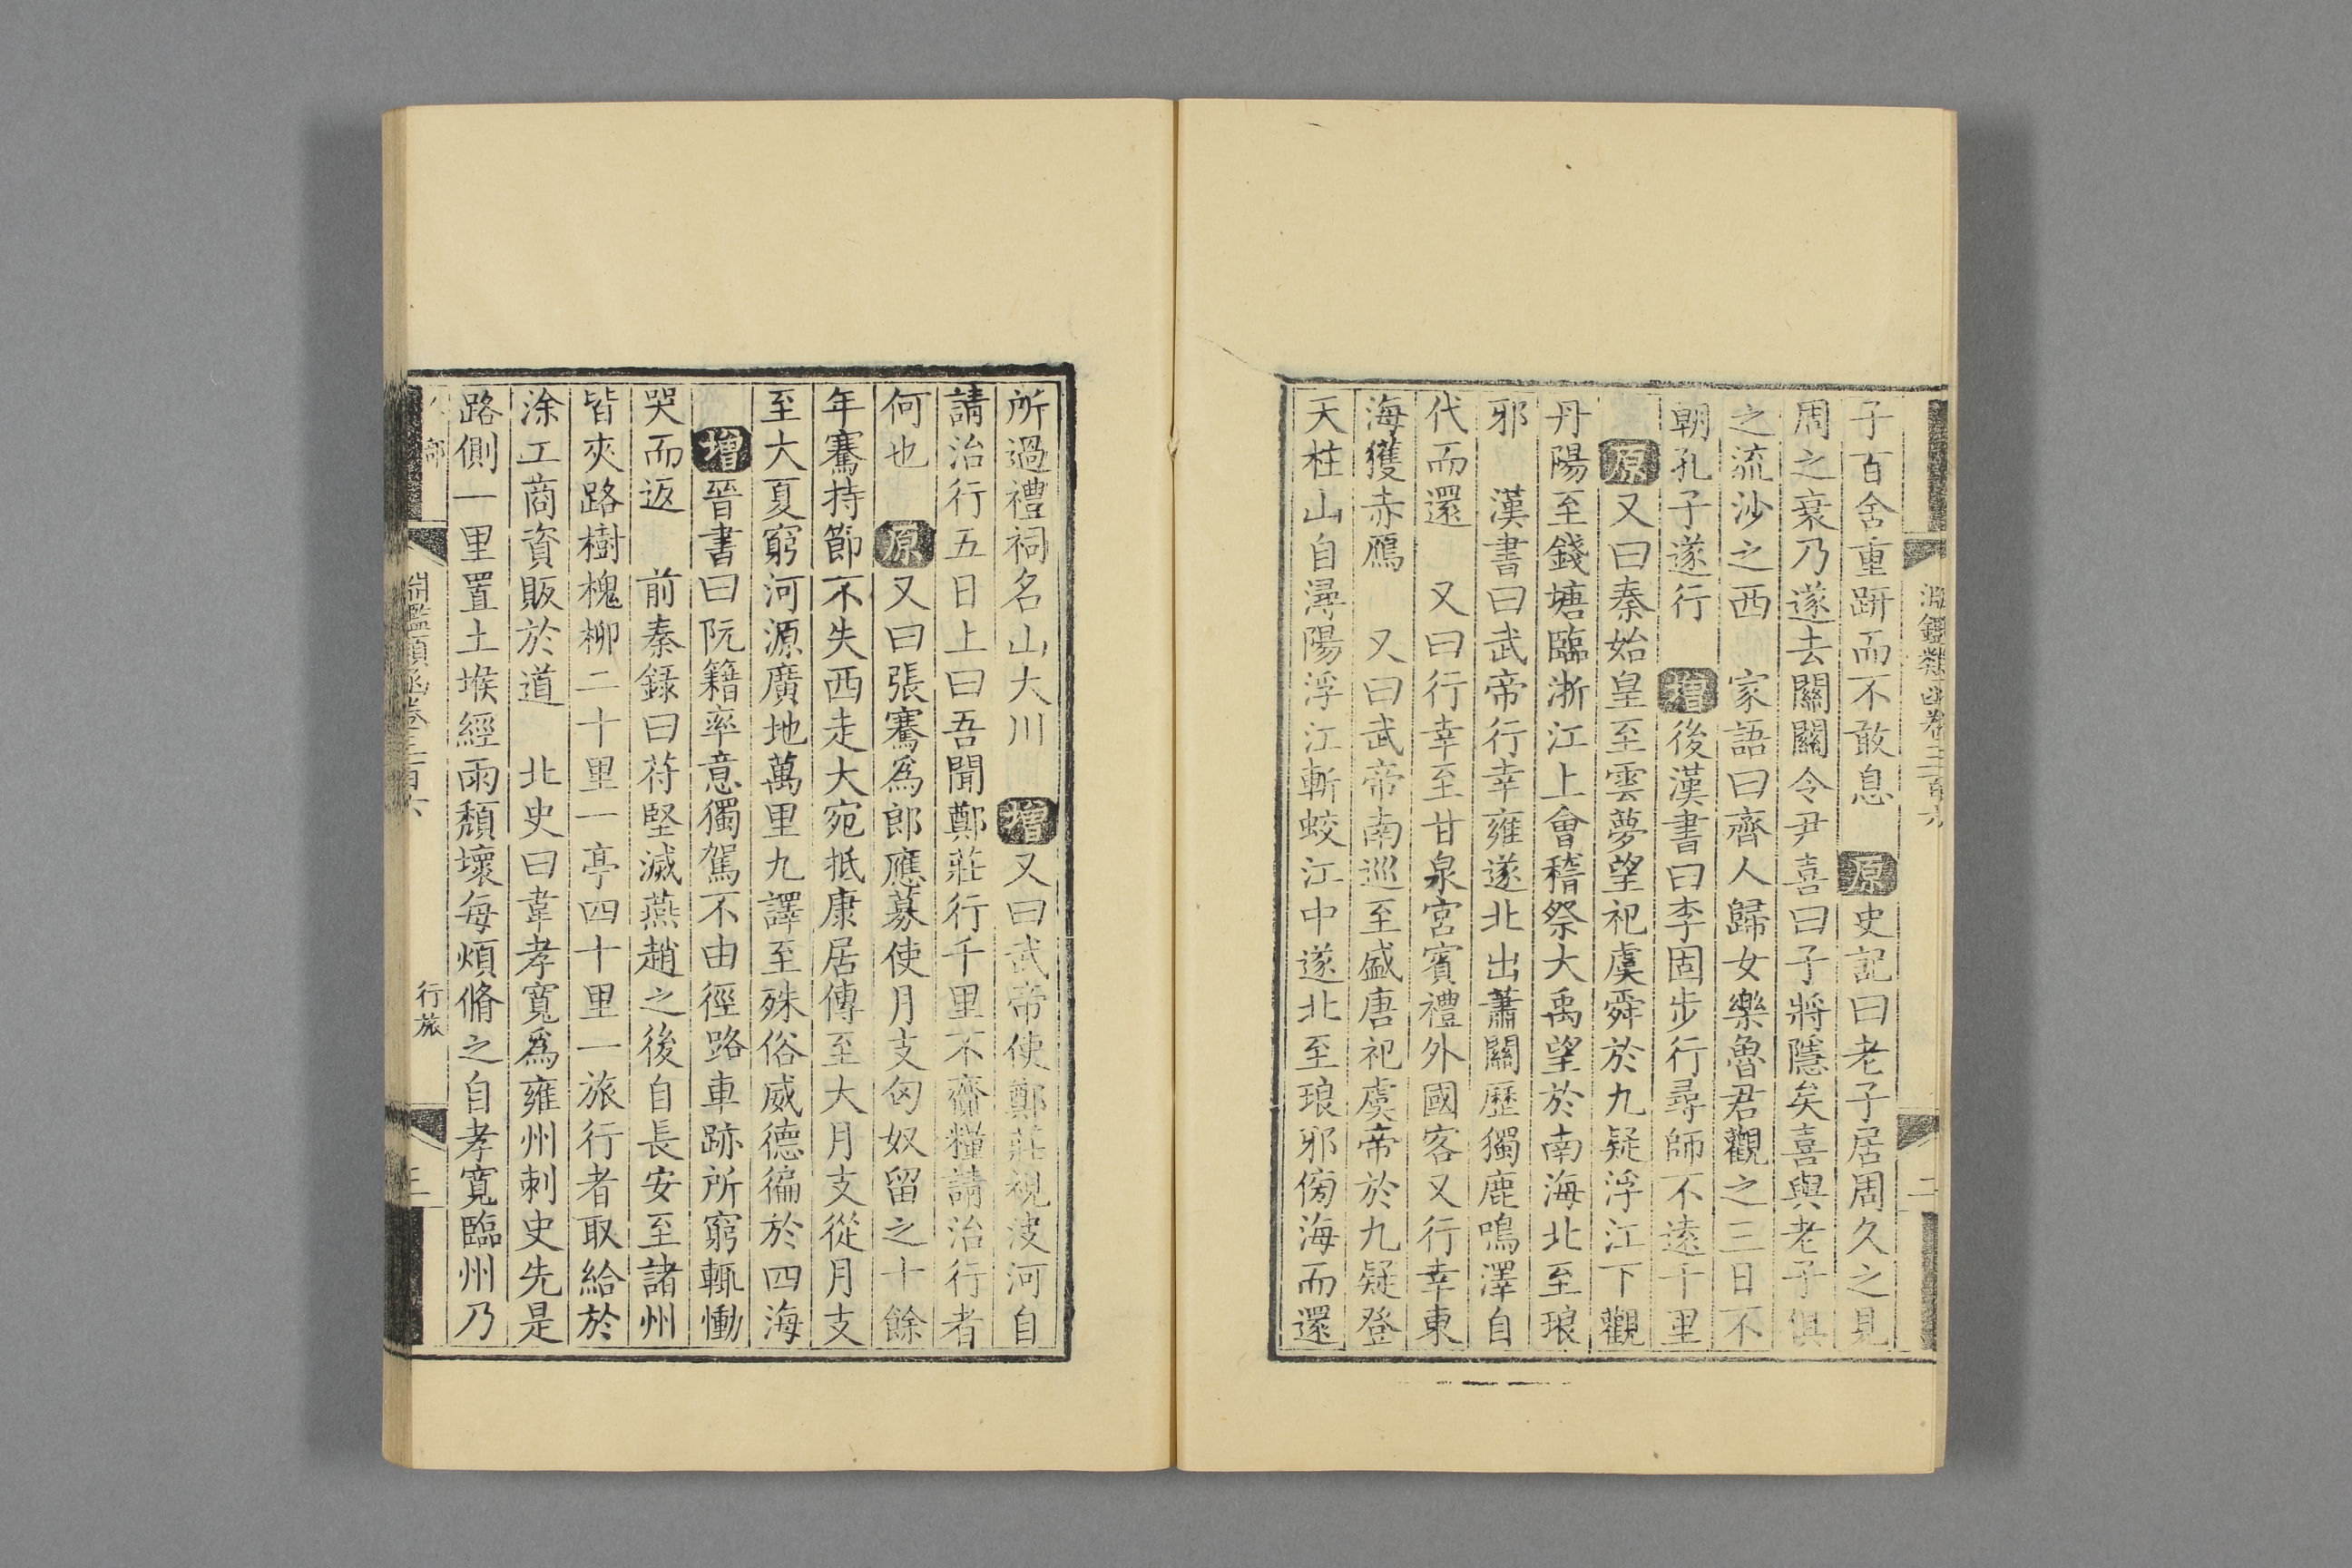 淵鑑類函卷三百六
二
子百舍重趼而不敢息 原史記曰老子居周久之見
周之衰乃遂去關關令尹喜曰子將隱矣喜與老子俱
之流沙之西 家語曰齊人歸女樂魯君觀之三日不
朝孔子遂行 增後漢書曰李固步行尋師不遠千里
原又曰秦始皇至雲夢望祀虞舜於九疑浮江下觀
丹陽至錢塘臨浙江上會稽祭大禹望於南海北至琅
邪 漢書曰武帝行幸雍遂北出蕭關歷獨鹿鳴澤自
代而還 又曰行幸至甘泉宮賓禮外國客又行幸東
海獲赤鴈 又曰武帝南巡至盛唐祀虞帝於九疑登
天柱山自潯陽浮江斬蛟江中遂北至琅邪傍海而還
所過禮祠名山大川 增又曰武帝使鄭莊視決河自
請治行五日上曰吾聞鄭莊行千里不齎糧請治行者
何也 原又曰張騫爲郎應募使月支匈奴留之十餘
年騫持節不失西走大宛抵康居傳至大月支從月支
至大夏窮河源廣地萬里九譯至殊俗威德徧於四海
增晉書曰阮籍率意獨駕不由徑路車跡所窮輒慟
哭而返 前秦錄曰苻堅滅燕趙之後自長安至諸州
皆夾路樹槐柳二十里一亭四十里一旅行者取給於
涂工商資販於道 北史曰韋孝寬爲雍州刺史先是
路側一里置土堠經雨頹壞每煩脩之自孝寬臨州乃
部
淵鑑類函卷三百六
行旅
三